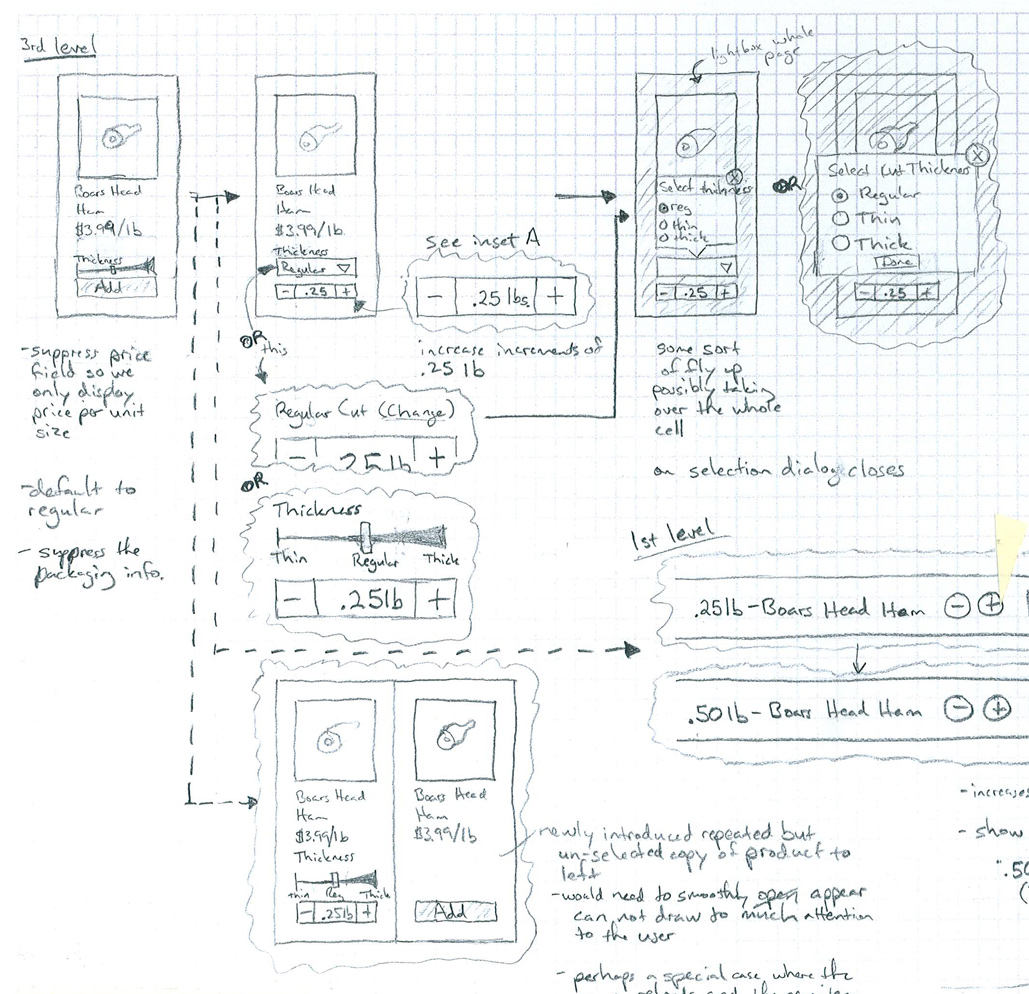 3rd level
Boars Head
Ham
$3.99/lb
Thickness
Add
-suppress price
field so we
only display
price per unit
size
-default to
regular
- suppress the
packaging info.
Boars Head
Ham
$3.99/lb
Thickness
Regular
- .25 +
OR
this
See inset A
- .25 lbs +
increase increments of
.25 lb
Regular Cut (Change)
- .25 lb +
OR
Thickness
Thin Regular Thick
- .25lb +
lightbox whole
page
Select thickness
X
reg
thin
thick
- .25 +
OR
X
Select Cut Thickness
Regular
Thin
Thick
Done
- .25 +
some sort
of fly up
possibly taking
over the whole
cell
on selection dialog closes
1st level
.25lb-Boars Head Ham - +
.50lb-Boars Head Ham - +
-increases
- show
".50
(
Boars Head
Ham
$3.99/lb
Thickness
thin Reg Thick
- .25lb +
Boars Head
Ham
$3.99/lb
Add
newly introduced repeated but
un-selected copy of product to
left
-would need to smoothly open appear
can not draw to much attention
to the user
- perhaps a special case where the